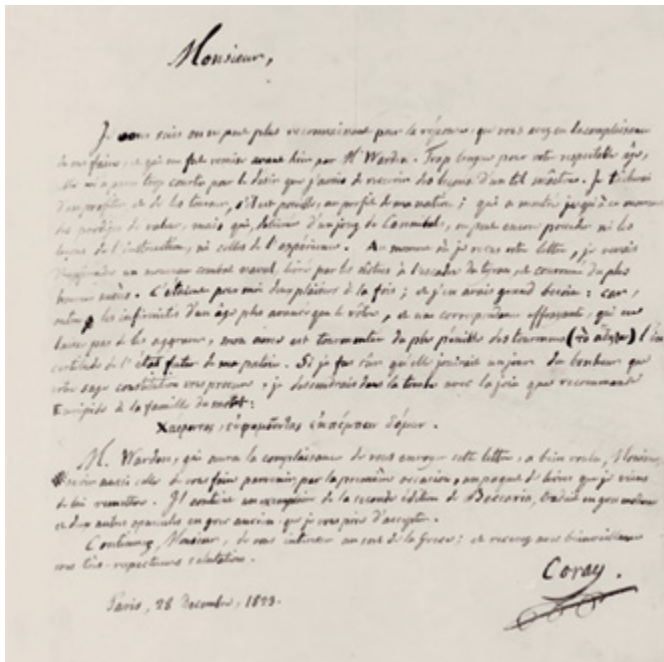 Monsieur,
Je vous suis on ne peut plus reconnaissant pour la réponse, que vous avez eu la complaisance
de me faire, et qui me fut remise avant hier par Mr Warden. Trop longue pour votre respectable âge,
elle m'a paru trop courte pour le désir que j'avais de recevoir des leçons d'un tel maître. Je tâcherai
d'en profiter et de les tourner, s'il est possible, au profit de ma nation; qui a montré jusqu'à ce moment
des prodiges de valeur, mais qui, délivrée d'un joug de Cannibales, ne peut encore posséder ni les
leçons de l'instruction, ni celles de l'expérience. Au moment où je reçus votre lettre, je venais
d'apprendre un nouveau combat naval, livré par les nôtres à l'escadre du tyran, et couronné du plus
heureux succès. C'étaient pour moi deux plaisirs à la fois; et j'en avais grand besoin: car,
outre les infirmités d'un âge plus avancé que le vôtre, et une correspondance effrayante, qui ne
laisse pas de les aggraver, mon âme est tourmentée du plus pénible des tourmens
certitude de l'état futur de ma patrie. Si je fus sûr qu'elle jouirait un jour du bonheur que
votre sage constitution vous procure, je descendrais dans la tombe avec la joie que recommande
Euripide à la famille du mort:
Χαίροντας, εὐφημοῦντας ἐκπέμπειν δόμων.
M. Warden, qui aura la complaisance de vous envoyer cette lettre, a bien voulu, Monsieur,
avoir aussi celle de vous faire parvenir par la première occasion, un paquet de livres que je viens
de lui remettre. Il contient un exemplaire de la seconde édition de Beccaria, traduit en grec moderne
et deux autres opuscules en grec ancien que je vous prie d'accepter.
Continuez, Monsieur, de vous intéresser au sort de la Grèce; et recevez avec bienveillance
mes très-respectueuses salutations.
Coray.
Paris, 28 Decembre, 1823.